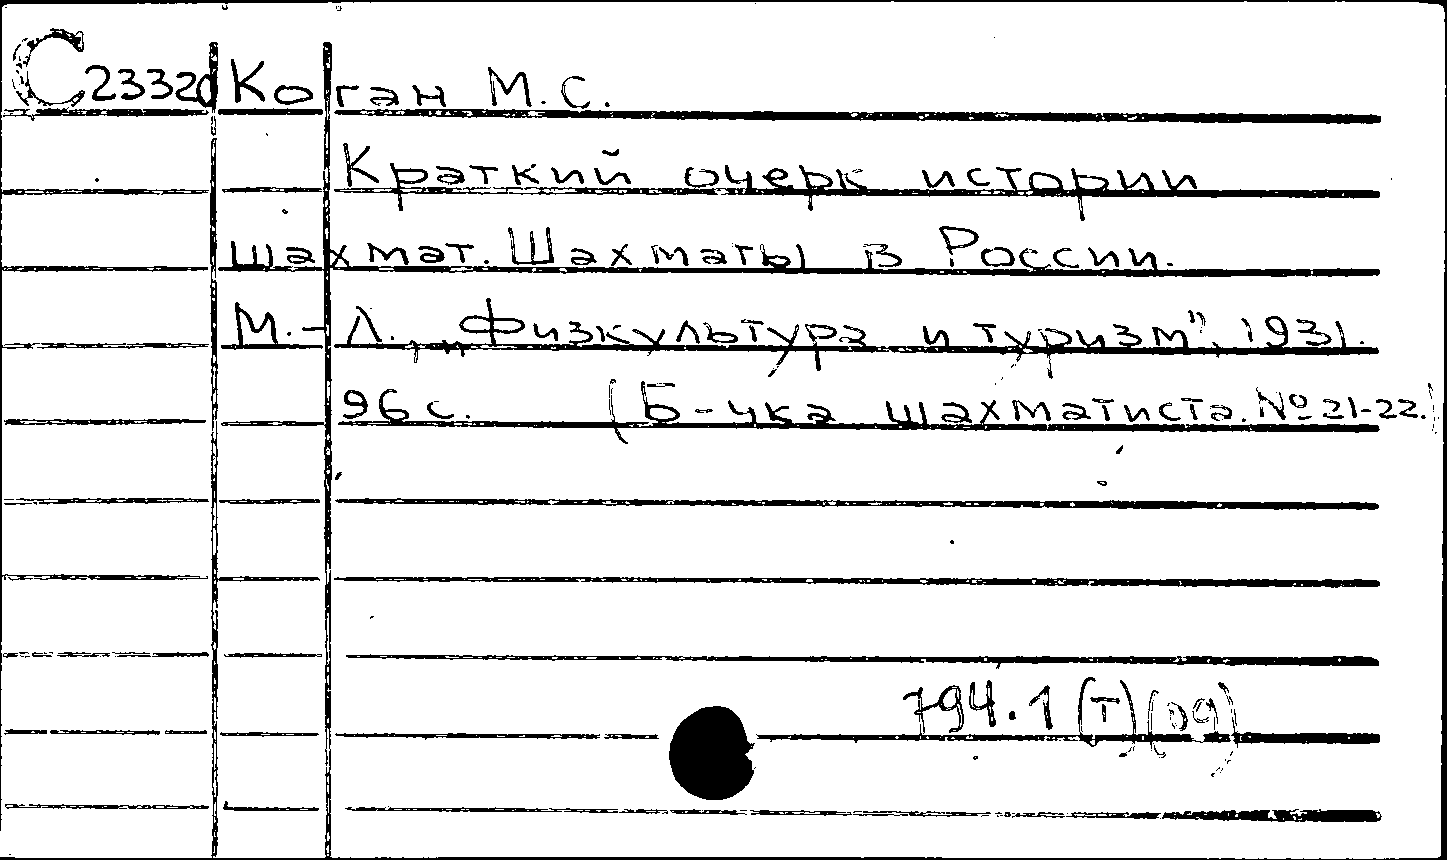 С23320 Коган М.С.
Краткий очерк истории
шахмат. Шахматы в России.
М.-Л., „Физкультура и туризм", 1931.
96с. (Б-чка шахматиста. № 21-22.)
794.1 (Т)(09)